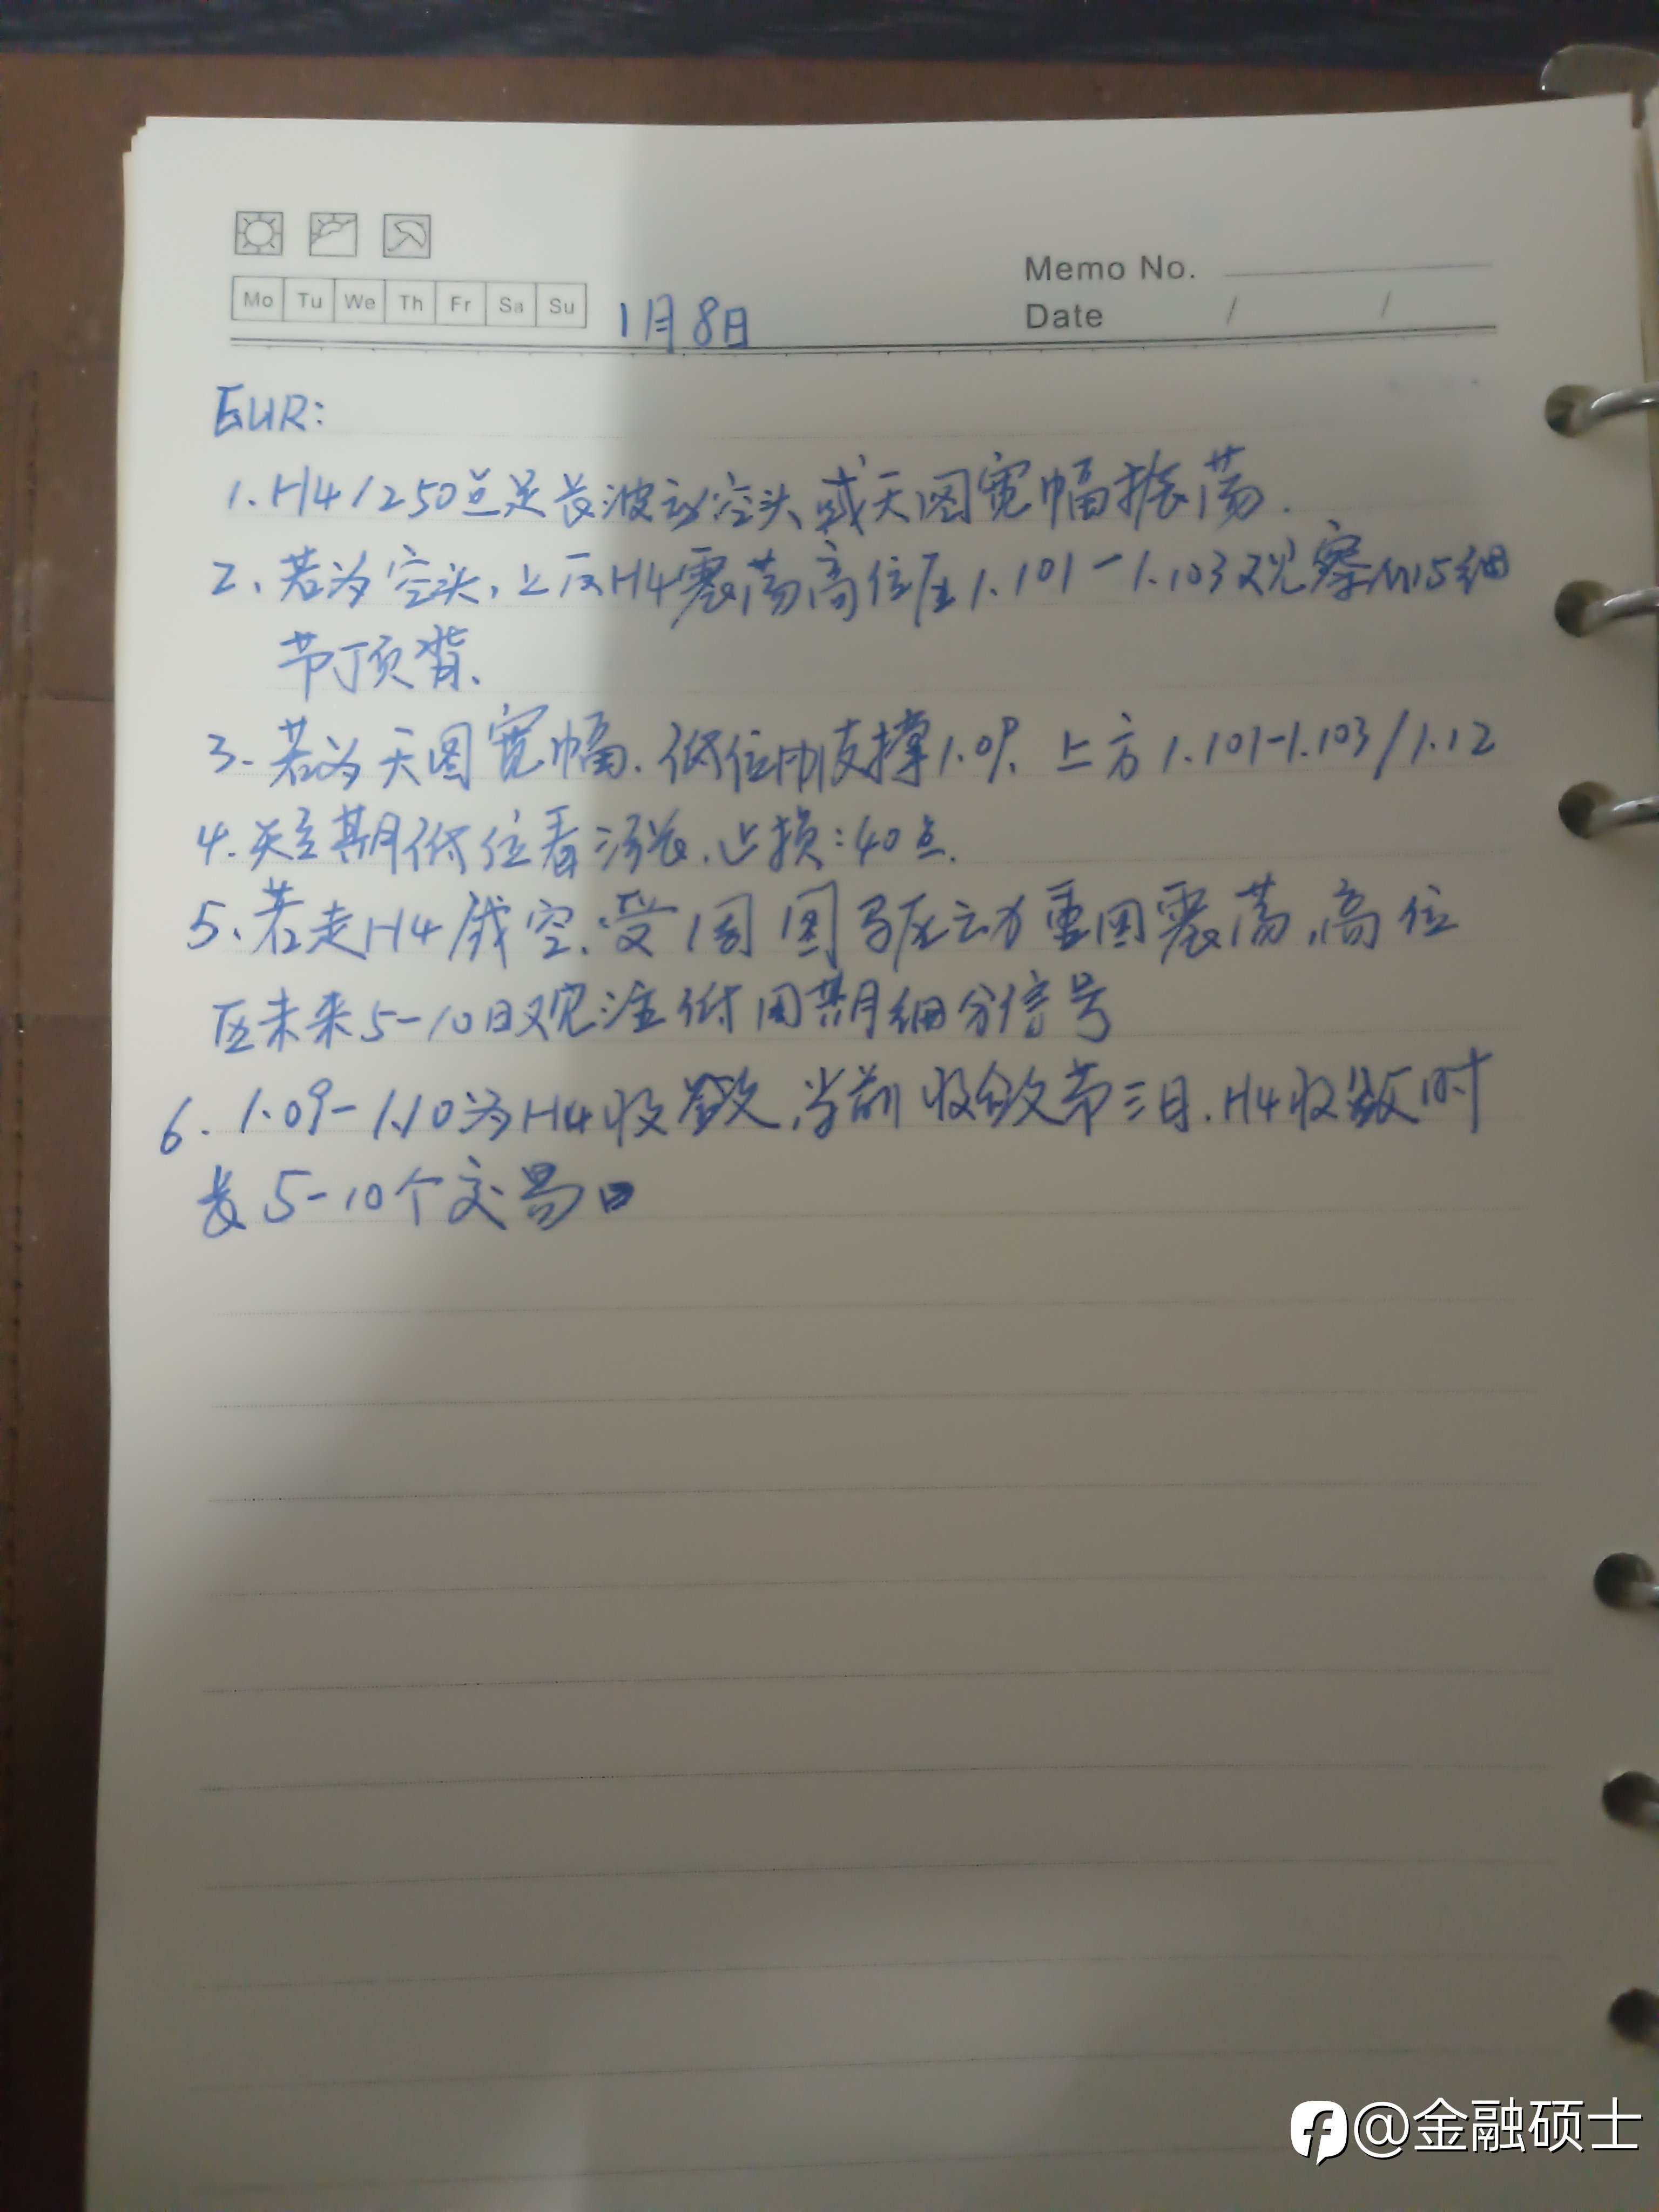 Mo Tu We Th Fr Sa Su
1月8日
Memo No.
Date / /
EUR:
1. H4/250点足长波动空头或天图宽幅振荡.
2、若为空头,上反H4震荡高位压1.101-1.103观察M15细
节顶背、
3、若为天图宽幅.低位支撑1.09、上方1.101-1.103/1.12
4.短期低位看涨.止损:40点.
5、若走H4成空.受周图驱动重回震荡,高位
区未来5-10日观注低周期细分信号
6. 1.09-1.10为H4收敛,当前收敛第三日.H4收敛时
长5-10个交易日
@金融硕士